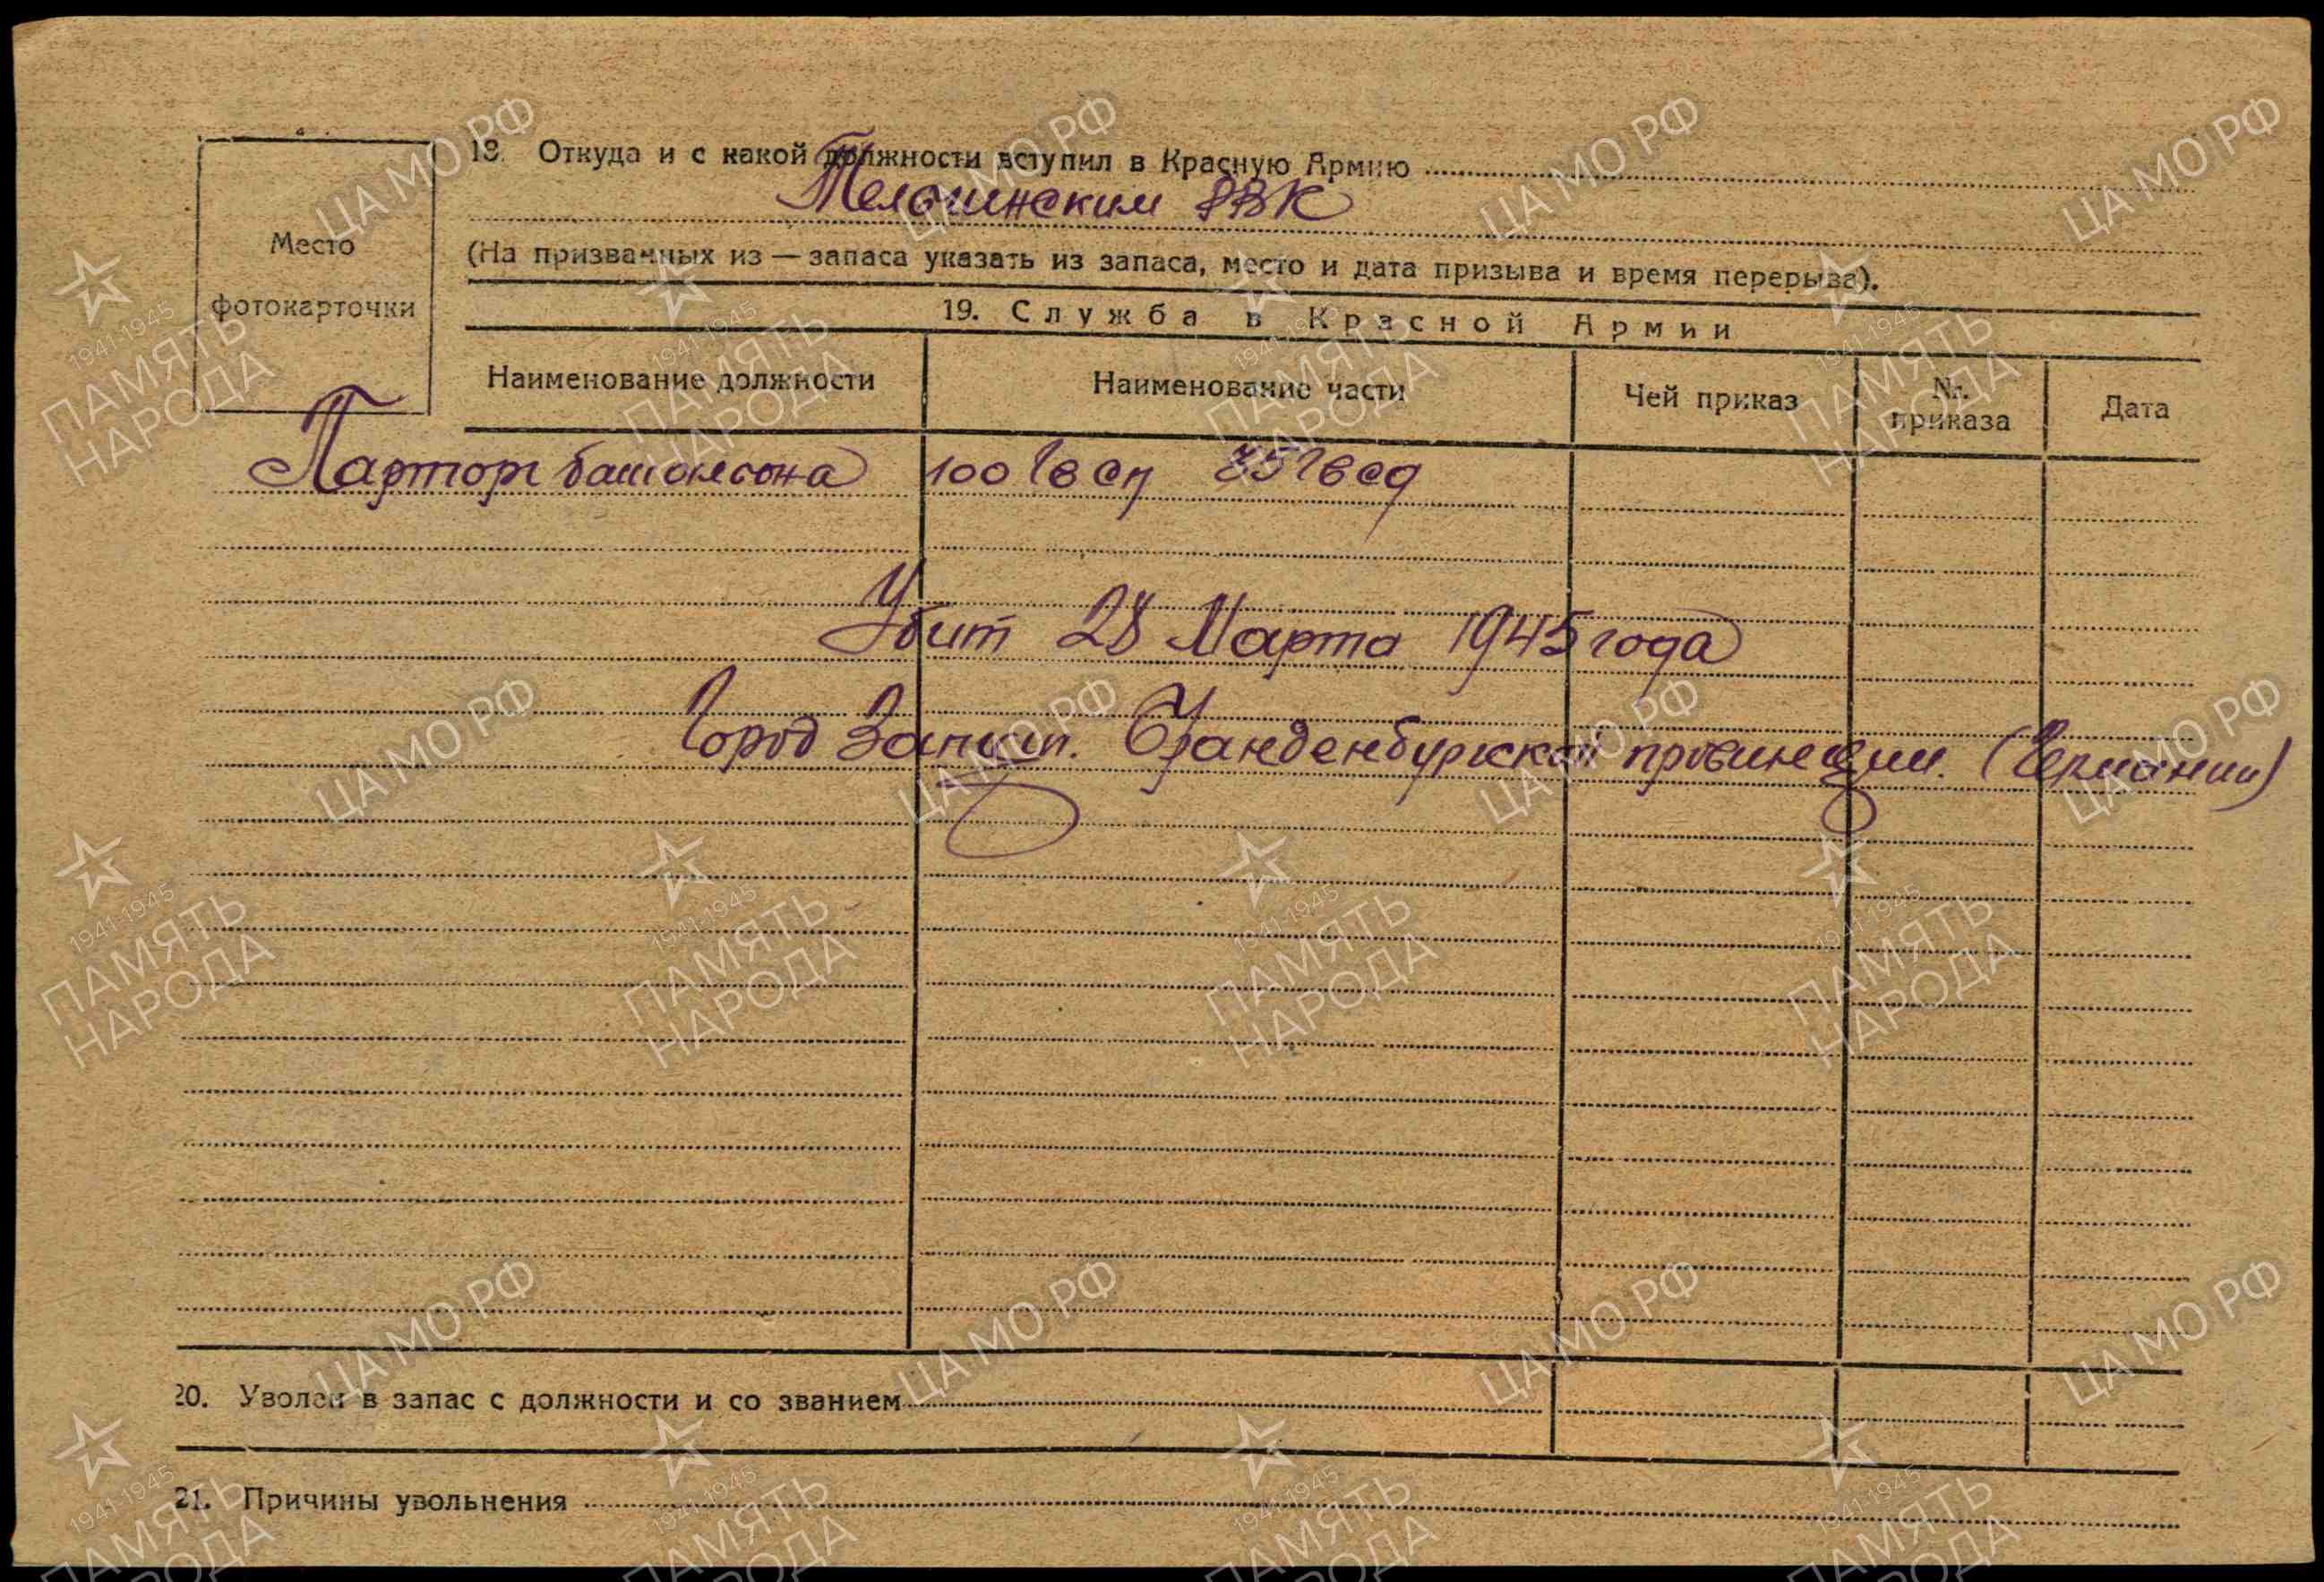 18. Откуда и с какой должности вступил в Красную Армию
РВК
(На призванных из — запаса указать из запаса, место и дата призыва и время перерыва).
Место
фотокарточки
19. Служба в Красной Армии
Наименование должности Наименование части Чей приказ Nr. приказа Дата
Парторг батальона 100 гв сп 35 гв сд
Убит 28 Марта 1945 года
Город Бранденбургской провинции. (Германии)
20. Уволен в запас с должности и со званием
21. Причины увольнения
ЦА МО РФ
1941-1945
ПАМЯТЬ
НАРОДА